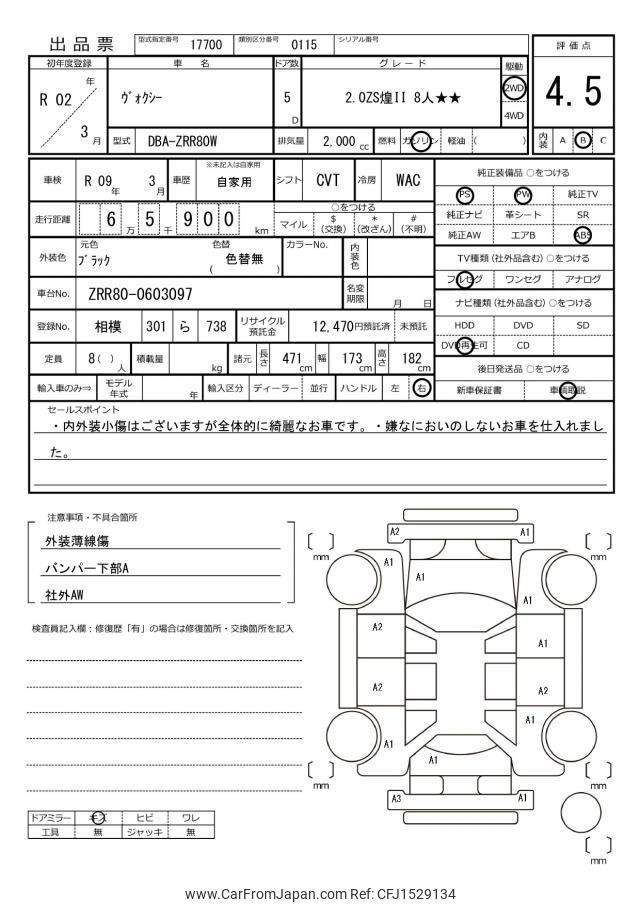 出品票
型式指定番号 17700 類別区分番号 0115 シリアル番号
評価点
4.5
内装 A B C
初年度登録 車名 ドア数 グレード 駆動
R 02 年 3 月
ヴォクシー
5 D
2.0ZS煌II 8人★★
2WD
4WD
型式 DBA-ZRR80W 排気量 2,000 cc 燃料 ガソリン 軽油 ( )
車検 R 09 年 3 月 車歴 ※未記入は自家用 自家用 シフト CVT 冷房 WAC
走行距離 6 万 5 千 9 0 0 km
○をつける
マイル $ (交換) * (改ざん) # (不明)
外装色 元色 ブラック 色替 ( 色替無 ) カラーNo. 内装色
車台No. ZRR80-0603097 名変期限 月 日
登録No. 相模 301 ら 738 リサイクル預託金 12,470円預託済 未預託
定員 8( ) 人 積載量 kg 諸元 長さ 471 cm 幅 173 cm 高さ 182 cm
輸入車のみ⇒ モデル年式 年 輸入区分 ディーラー 並行 ハンドル 左 右
純正装備品 ○をつける
PS PW 純正TV
純正ナビ 革シート SR
純正AW エアB ABS
TV種類 (社外品含む) ○をつける
フルセグ ワンセグ アナログ
ナビ種類 (社外品含む) ○をつける
HDD DVD SD
DVD再生可 CD
後日発送品 ○をつける
新車保証書 車輌取説
セールスポイント
・内外装小傷はございますが全体的に綺麗なお車です。・嫌なにおいのしないお車を仕入れまし
た。
注意事項・不具合箇所
外装薄線傷
バンパー下部A
社外AW
検査員記入欄：修復歴「有」の場合は修復箇所・交換箇所を記入
ドアミラー キズ ヒビ ワレ
工具 無 ジャッキ 無
A2 A1
[ ] mm [ ] mm
A1 A1 A1
A2 A1
A2 A2
A1 A1 A1
[ ] mm [ ] mm
A3 A1
[ ] mm
www.CarFromJapan.com Ref: CFJ1529134